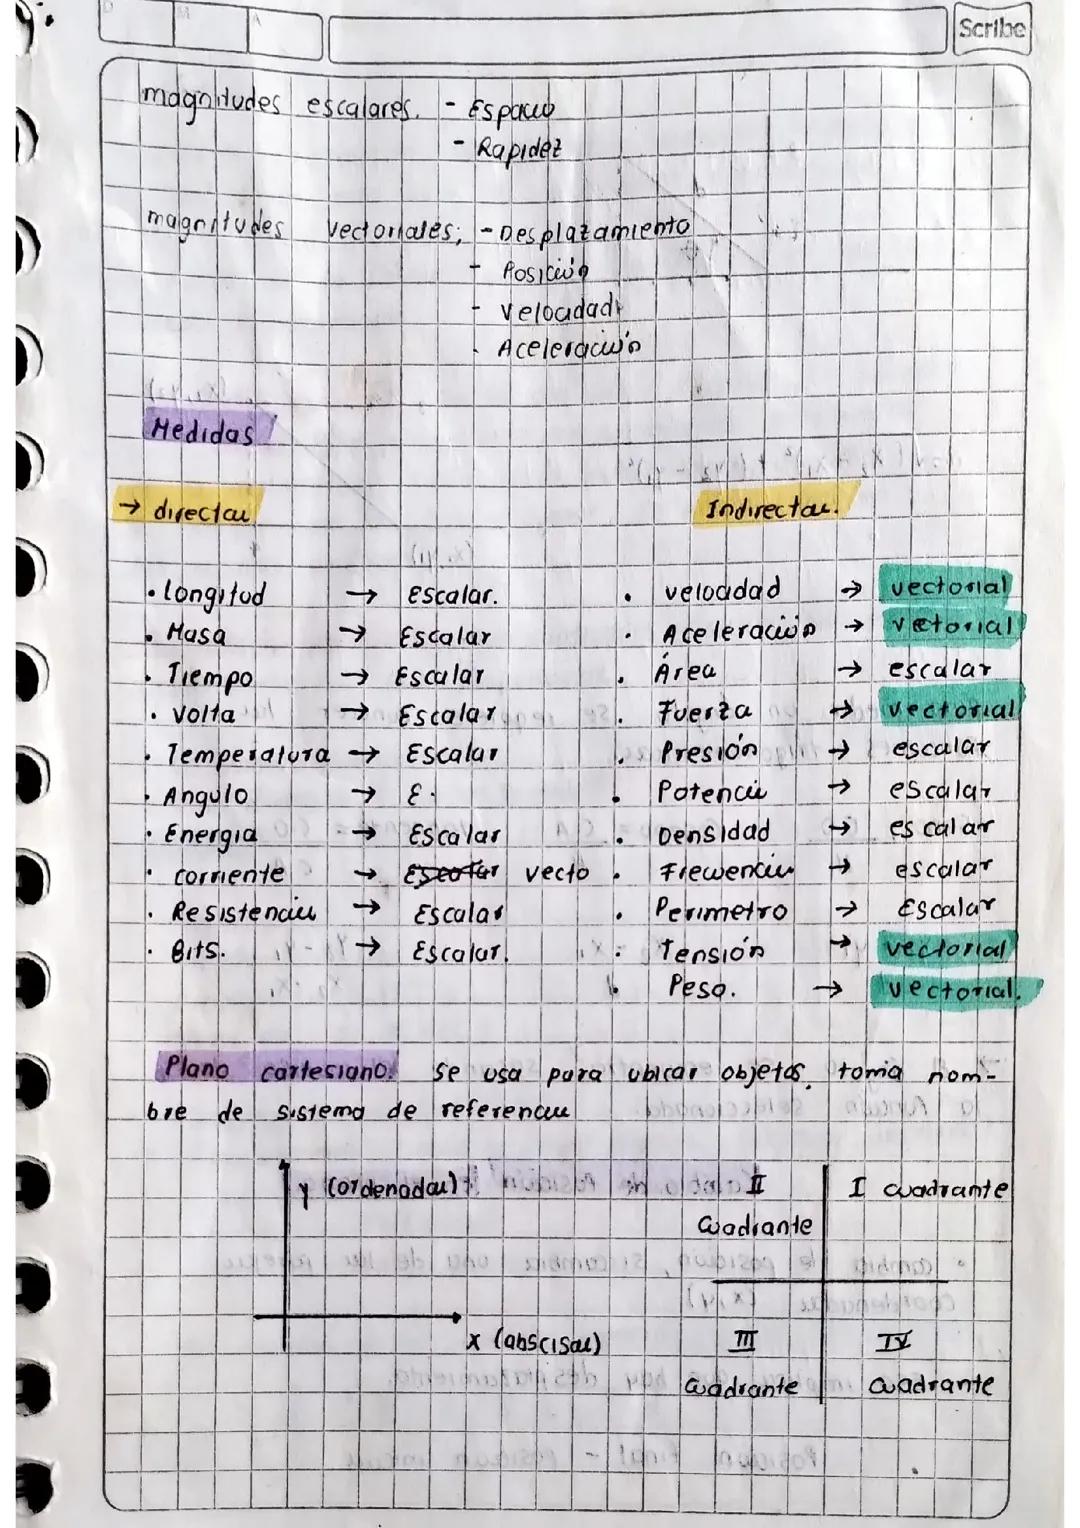 D M A
Scribe
magnitudes escalares. - Espacio
- Rapidez
magnitudes vectoriales; - Desplazamiento
- Posición
- velocidad
- Aceleración
Medidas
→ directas
Indirectas.
• Longitud → escalar. • velocidad → vectorial
• Masa → Escalar • Aceleración → vectorial
• Tiempo → Escalar • Área → escalar
• Volta → Escalar • Fuerza → vectorial
• Temperatura → Escalar • Presión → escalar
• Angulo → E. • Potencia → escalar
• Energia → Escalar • Densidad → escalar
• corriente → Escalar vecto • Frecuencia → escalar
• Resistencia → Escalar • Perimetro → Escalar
• Bits. → Escalar. • Tensión → vectorial
• Peso. → vectorial.
Plano cartesiano: se usa para ubicar objetos, toma nom-
bre de sistema de referencia
y (ordenadas) II I cuadrante
cuadrante
x (abscisas) III IV
cuadrante cuadrante